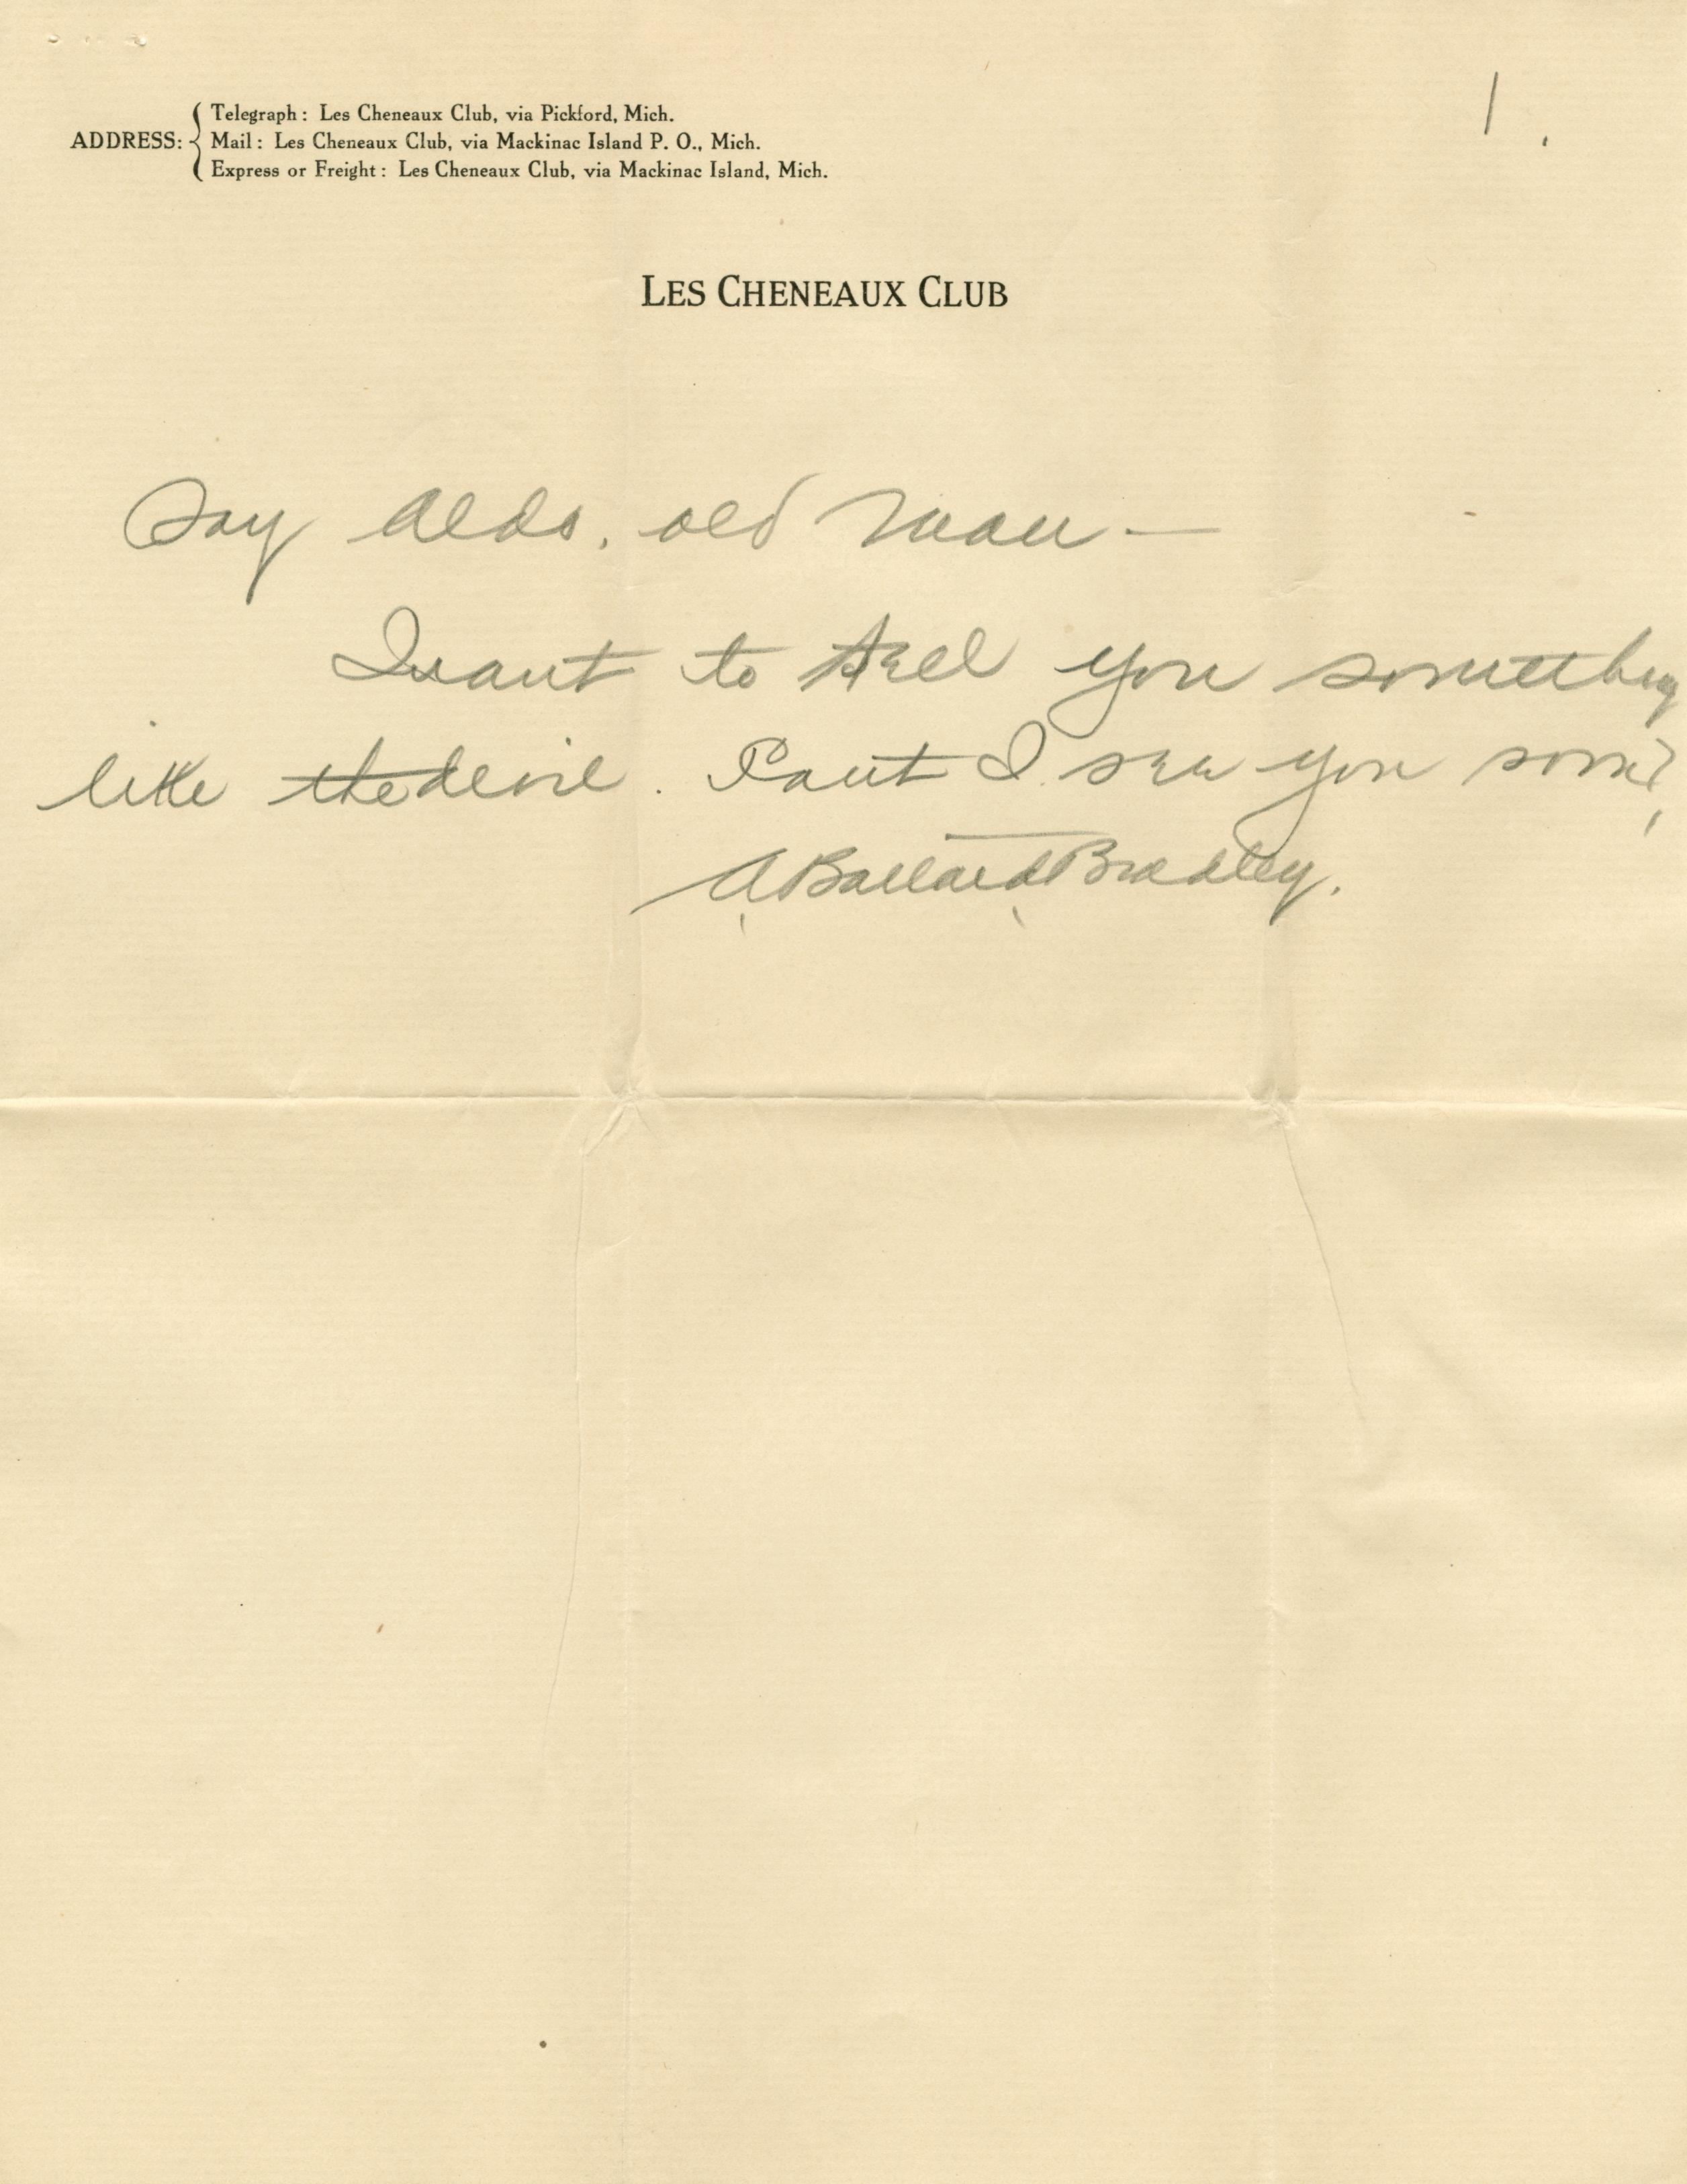 1.
ADDRESS:
Telegraph: Les Cheneaux Club, via Pickford, Mich.
Mail: Les Cheneaux Club, via Mackinac Island P. O., Mich.
Express or Freight: Les Cheneaux Club, via Mackinac Island, Mich.
LES CHENEAUX CLUB
Say Aldo, old man —
I want to tell you something
like the devil. Cant I see you soon?
A Ballard Bradley.